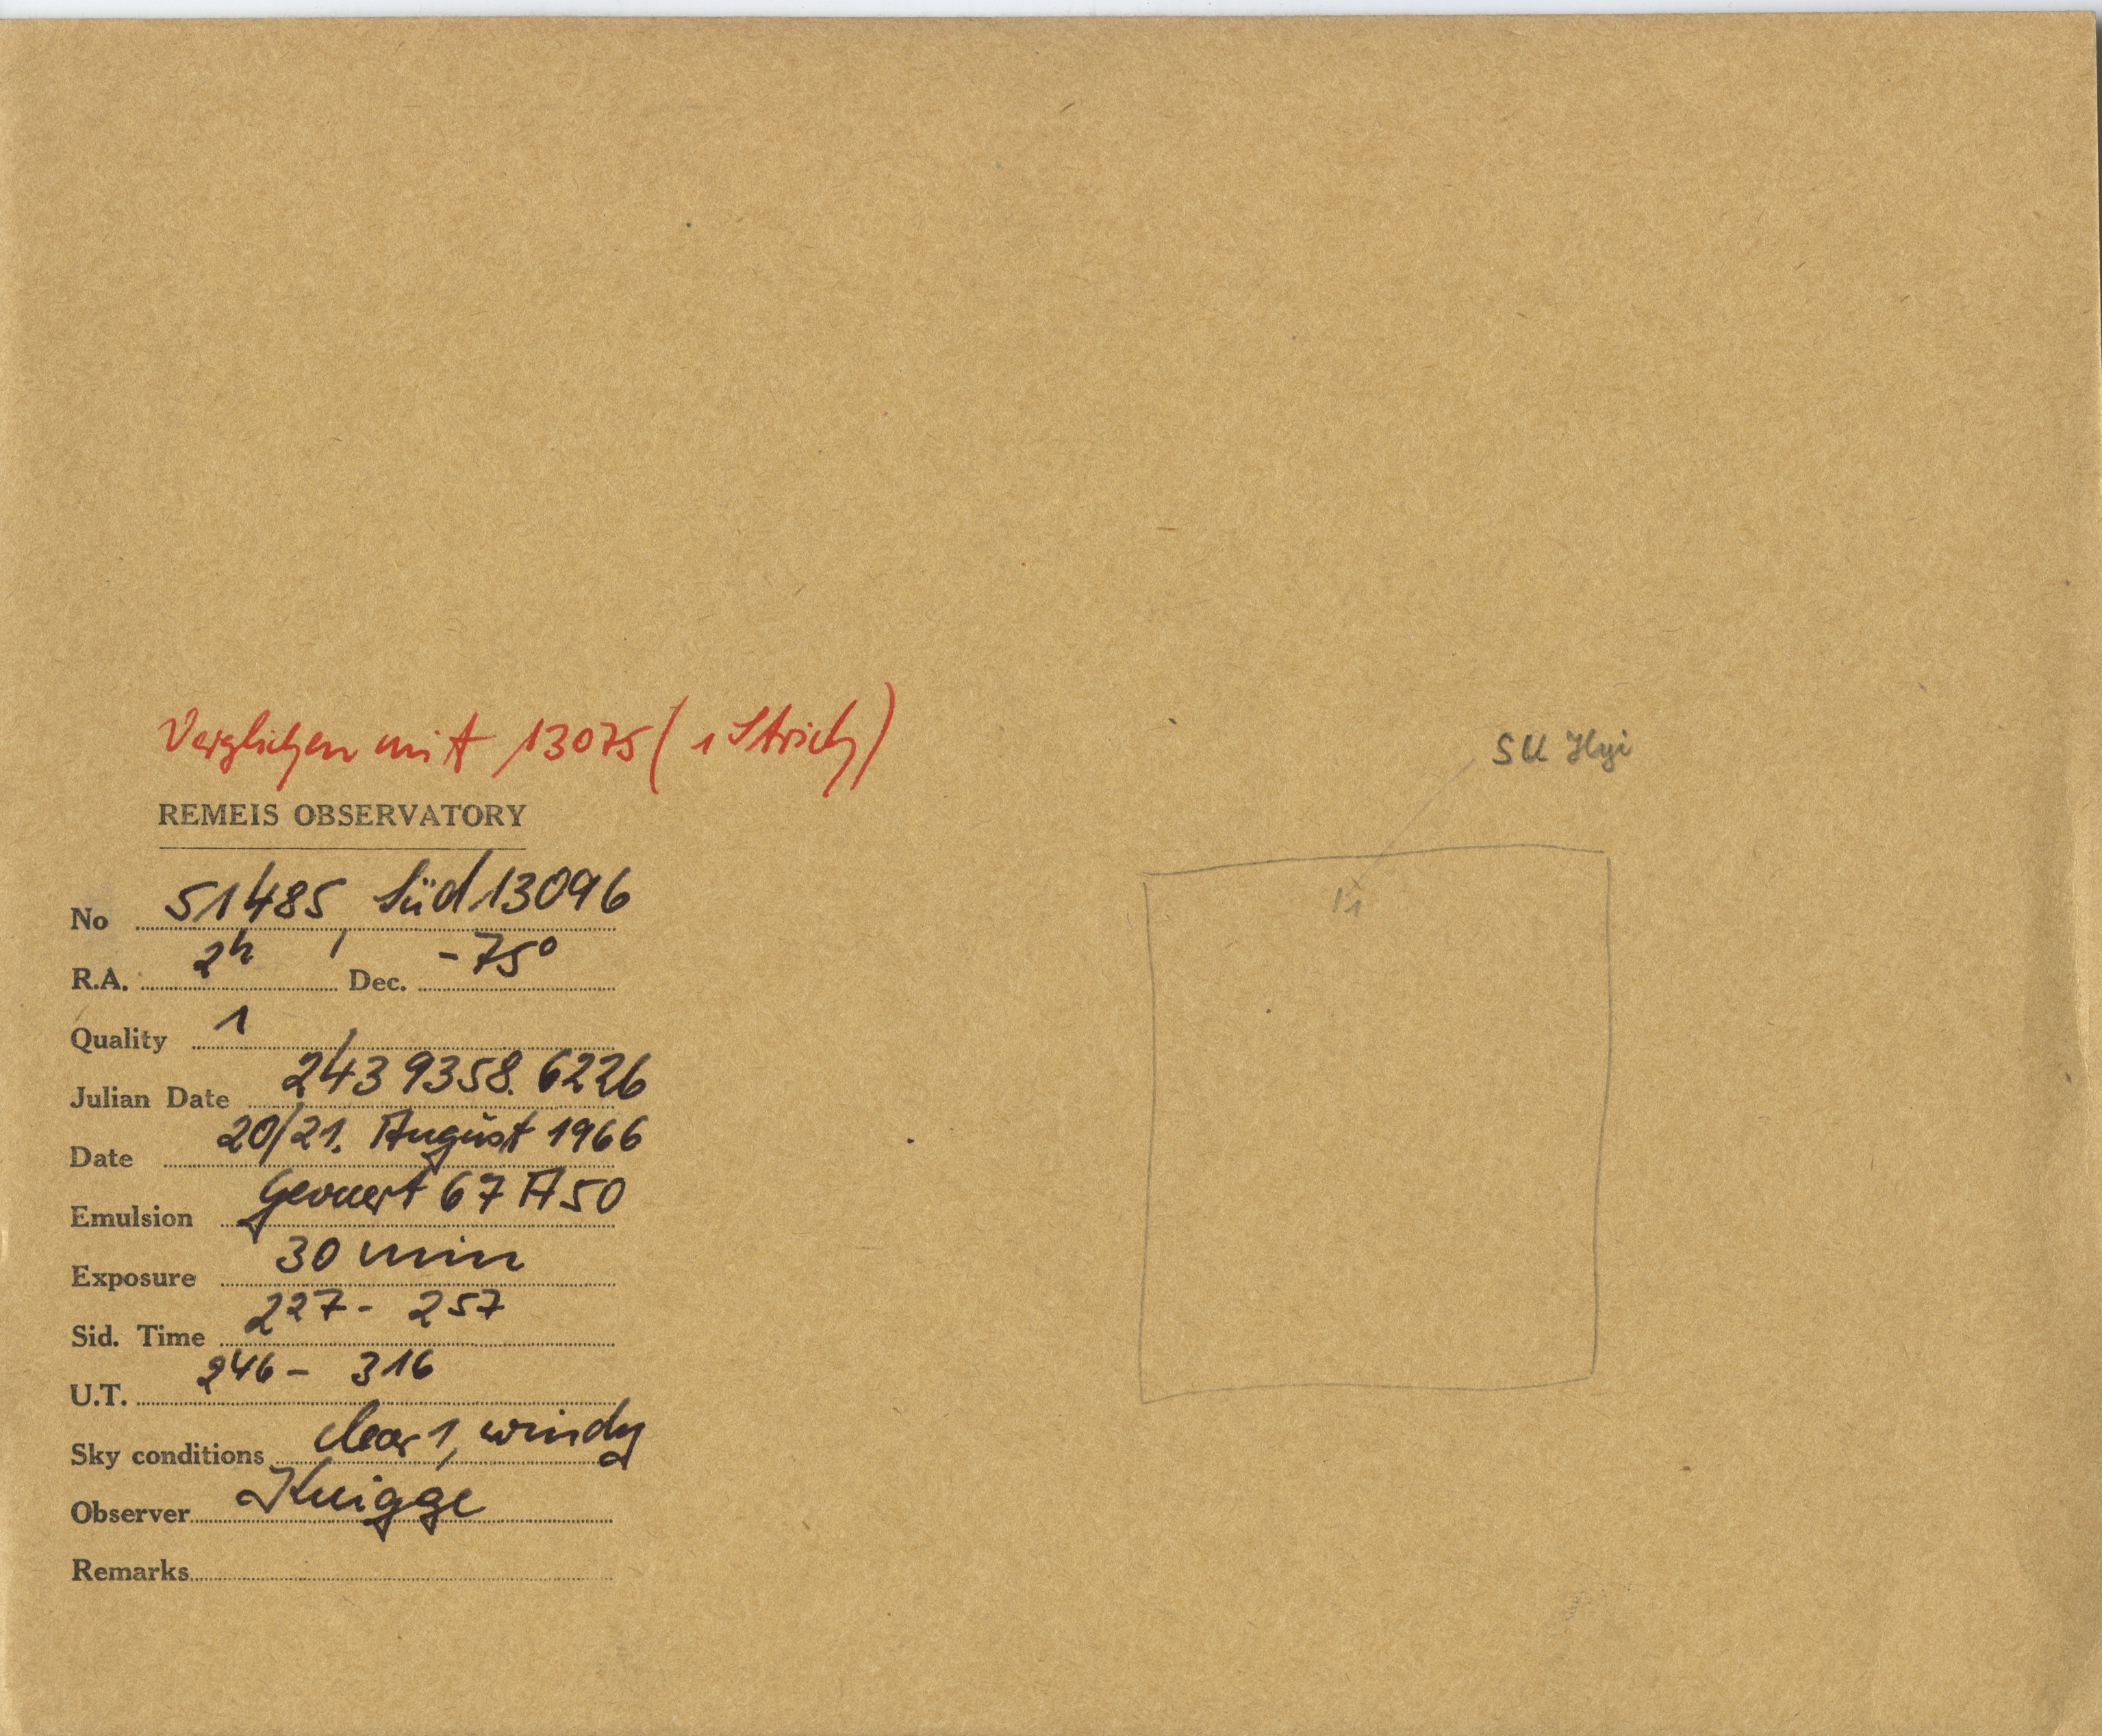 Verglichen mit 13075 (1 Strich)
REMEIS OBSERVATORY
No 51485, Süd 13096
R.A. 2h Dec. -75°
Quality 1
Julian Date 243 9358.6226
Date 20/21. August 1966
Emulsion Gevaert 67 A 50
Exposure 30 min
Sid. Time 227 - 257
U.T. 246 - 316
Sky conditions clear 1, windy
Observer Knigge
Remarks
SU Hyi